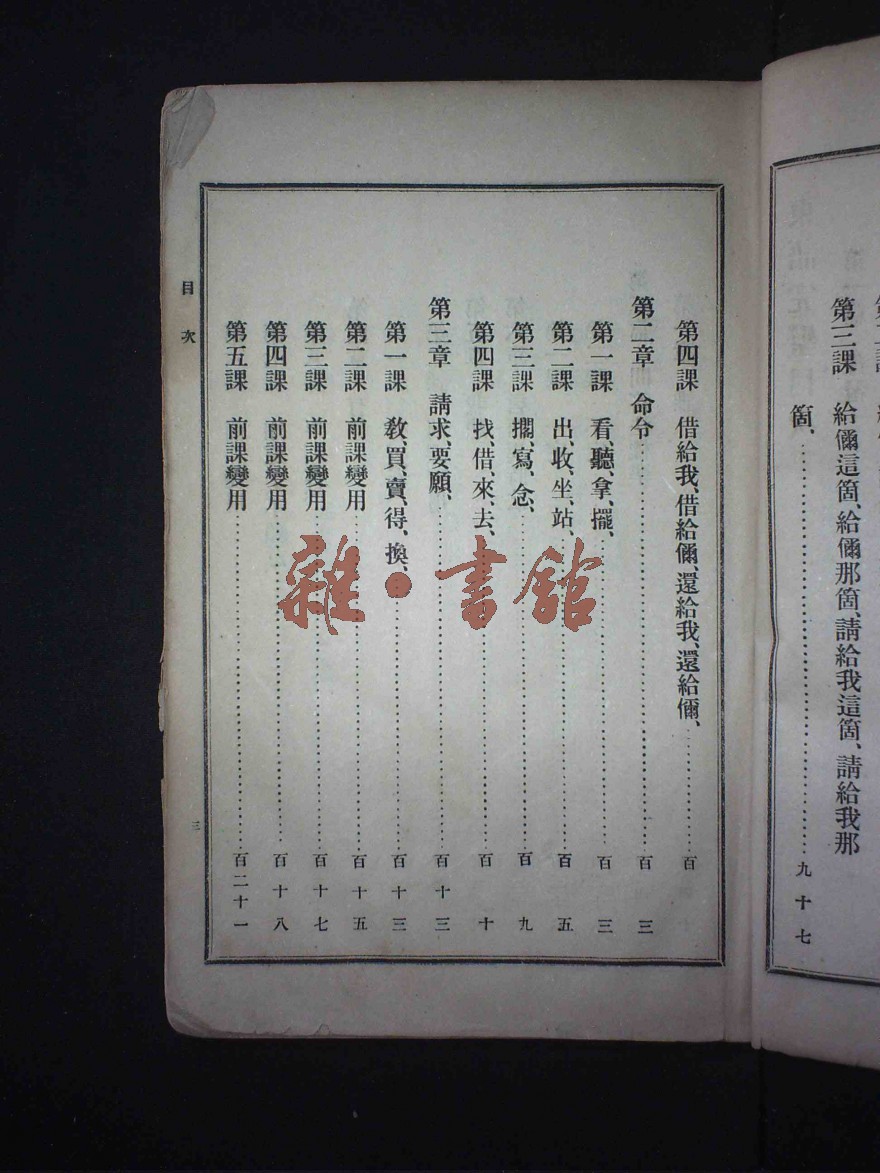 第三課　給儞這箇、給儞那箇、請給我這箇、請給我那
箇、……九十七
第四課　借給我、借給儞、還給我、還給儞、……百
第二章　命令……百三
第一課　看、聽、拿、擺、……百三
第二課　出、收、坐、站、……百五
第三課　擱、寫、念、……百九
第四課　找、借、來、去、……百十
第三章　請求、要願、……百十三
第一課　敎、買、賣、得、換、……百十三
第二課　前課變用……百十五
第三課　前課變用……百十七
第四課　前課變用……百十八
第五課　前課變用……百二十一
目次
三
雜·書館